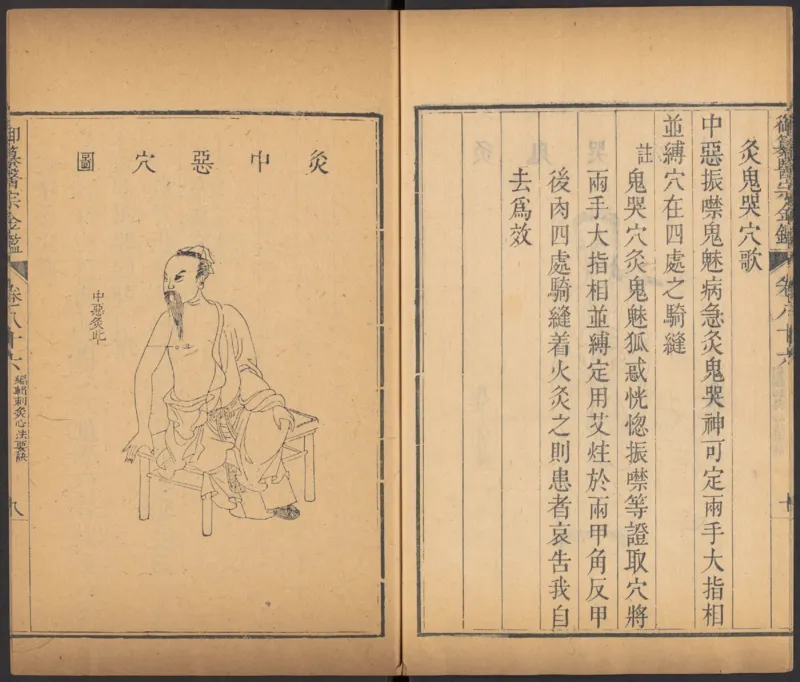 御纂醫宗金鑑 卷八十六
灸鬼哭穴歌
中惡振噤鬼魅病急灸鬼哭神可定兩手大指相
並縛穴在四處之騎縫
註
鬼哭穴灸鬼魅狐惑恍惚振噤等證取穴將
兩手大指相並縛定用艾炷於兩甲角反甲
後肉四處騎縫着火灸之則患者哀告我自
去爲效
灸中惡穴圖
中惡灸此
御纂醫宗金鑑 卷八十六 編輯刺灸心法要訣 九